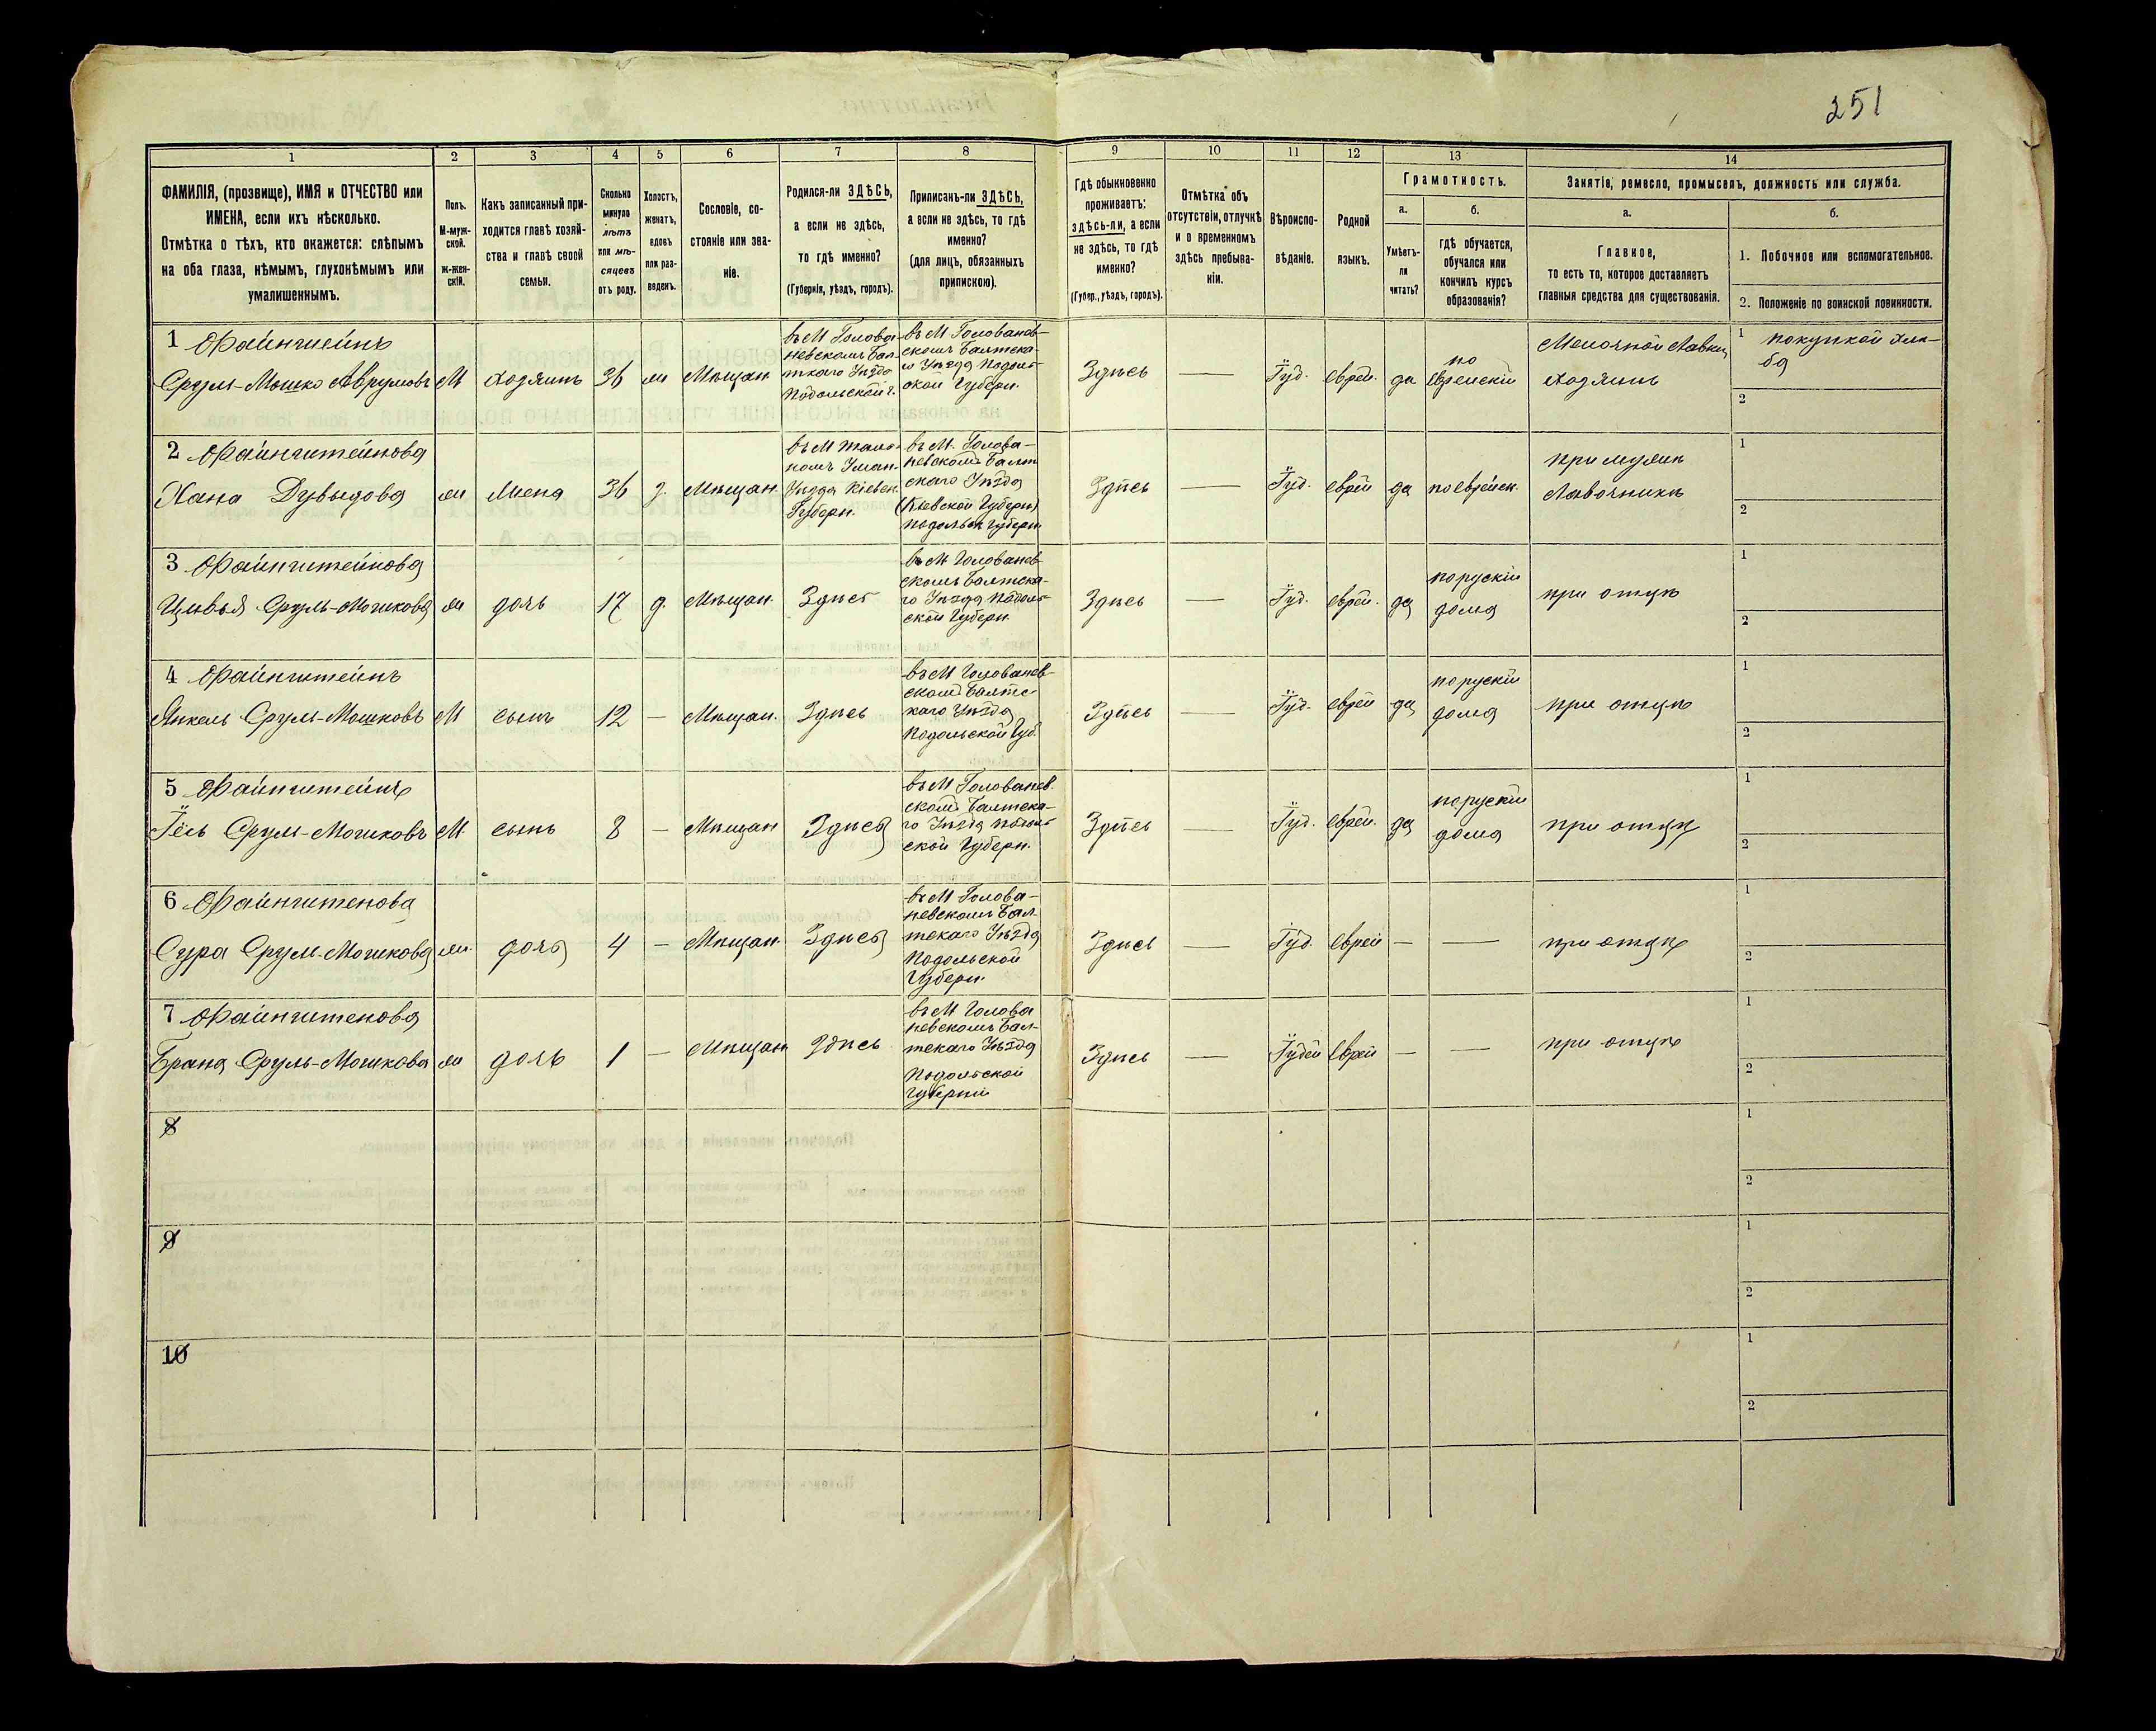 251
1 2 3 4 5 6 7 8 9 10 11 12 13 14
ФАМИЛІЯ, (прозвище), ИМЯ и ОТЧЕСТВО или
ИМЕНА, если ихъ нѣсколько.
Отмѣтка о тѣхъ, кто окажется: слѣпымъ
на оба глаза, нѣмымъ, глухонѣмымъ или
умалишеннымъ.
Полъ.
М-муж-
ской.
ж-жен-
скій.
Какъ записанный при-
ходится главѣ хозяй-
ства и главѣ своей
семьи.
Сколько
минуло
лѣтъ
или мѣ-
сяцевъ
отъ роду.
Холостъ,
женатъ,
вдовъ
или раз-
веденъ.
Сословіе, со-
стояніе или зва-
ніе.
Родился-ли ЗДѢСЬ,
а если не здѣсь,
то гдѣ именно?
(Губернія, уѣздъ, городъ).
Приписанъ-ли ЗДѢСЬ,
а если не здѣсь, то гдѣ
именно?
(для лицъ, обязанныхъ
припискою).
Гдѣ обыкновенно
проживаетъ:
здѣсь-ли, а если
не здѣсь, то гдѣ
именно?
(Губер., уѣздъ, городъ).
Отмѣтка объ
отсутствіи, отлучкѣ
и о временномъ
здѣсь пребыва-
ніи.
Вѣроиспо-
вѣданіе.
Родной
языкъ.
Грамотность.
а.
Умѣетъ-
ли
читать?
б.
гдѣ обучается,
обучался или
кончилъ курсъ
образованія?
Занятіе, ремесло, промыселъ, должность или служба.
а.
Главное,
то есть то, которое доставляетъ
главныя средства для существованія.
б.
1. Побочное или вспомогательное.
2. Положеніе по воинской повинности.
1 Файнштейнъ
Сруль-Мошко Аврумовъ
М
хозяинъ
36
ж
Мѣщан.
въ М Голова-
невскомъ Бал-
тскаго Уѣзда
Подольской г.
въ М Голованев-
скомъ Балтска-
го Уѣзда Подоль-
ской Губерн.
Здѣсь
—
Іуд.
еврей.
да
по
еврейскій
Мелочной Лавки
хозяинъ
1 покупкой хлѣ-
ба
2
2 Файнштейнова
Хана Дувыдова
ж
жена
36
з.
Мѣщан.
въ М Таль-
номъ Уман.
Уѣзда Кіевск.
Губерн.
въ М. Голова-
невском Балт
скаго Уѣзда
(Кіевской Губерн)
Подольск Губерн.
Здѣсь
—
Іуд.
еврей
да
по еврейск.
при мужѣ
Лавочникѣ
1
2
3 Файнштейнова
Цивья Сруль-Мошкова
ж
дочь
17
д.
Мѣщан.
Здѣсь
въ М Голованев
скомъ Балтска-
го Уѣзда Подоль-
ской Губерн.
Здѣсь
—
Іуд.
еврей.
да
по рускій
дома
при отцѣ
1
2
4 Файнштейнъ
Янкель Сруль-Мошковъ
М
сынъ
12
—
Мѣщан.
Здѣсь
въ М Голованев-
ском Балтс-
каго Уѣзда
Подольской Губ.
Здѣсь
—
Іуд.
еврей
да
по рускій
дома
при отцѣ
1
2
5 Файнштейнъ
Іёсь Сруль-Мошковъ
М
сынъ
8
—
Мѣщан
Здѣсь
въ М Голованев.
ском Балтска-
го Уѣзда Подоль
ской Губерн.
Здѣсь
—
Іуд.
еврей.
да
по рускій
дома
при отцѣ
1
2
6 Файнштенова
Сура Сруль-Мошкова
ж.
дочь
4
—
Мѣщан.
Здѣсь
въ М Голова-
невскомъ Бал
тскаго Уѣзда
Подольской
Губерн.
Здѣсь
—
Іуд.
еврей
—
—
при отцѣ
1
2
7 Файнштенова
Брана Сруль-Мошкова
ж
дочь
1
—
Мѣщан
Здѣсь
въ М Голова
невскомъ Бал-
тскаго Уѣзда
Подольской
Губерніи
Здѣсь
—
Іудей
еврей
—
—
при отцѣ
1
2
8
1
2
9
1
2
10
1
2